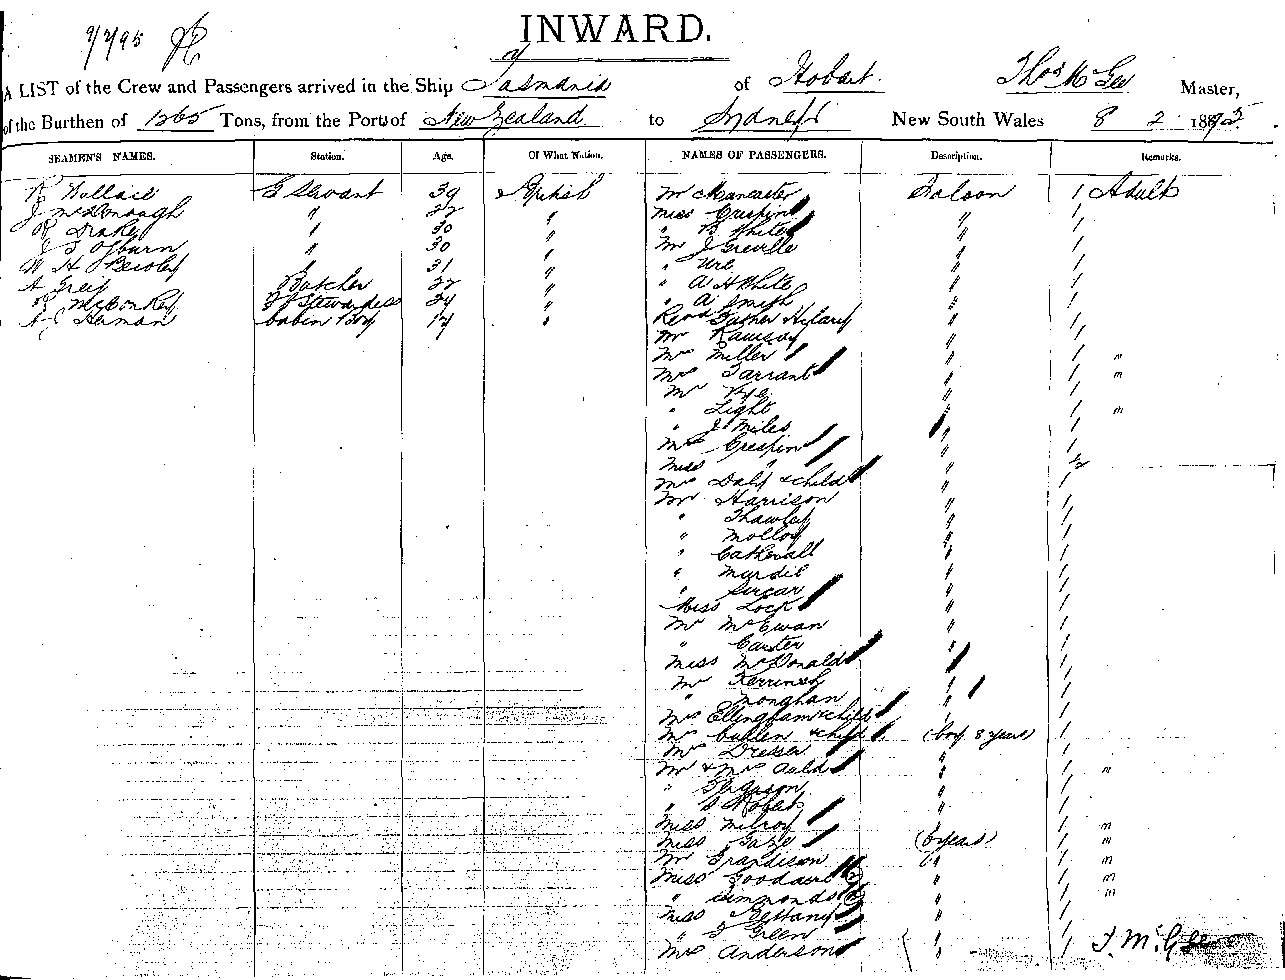 INWARD.
9/2/95
A LIST of the Crew and Passengers arrived in the Ship Tasmania of Hobart Thos McGee Master,
of the Burthen of 1265 Tons, from the Port of New Zealand to Sydney New South Wales 8 2 1895
SEAMEN'S NAMES. Station. Age. Of What Nation. NAMES OF PASSENGERS. Description. Remarks.
R Wallace G Servant 39 British Mr Mancater Saloon 1 Adult
J McDonough " 27 " Miss Crispin " 1
R Drake " 30 " " B White " 1
J T Osburn " 30 " Mr J Greville " 1
W H Beesley " 31 " " Ure " 1
A Greig Butcher 22 " " A H White " 1
R McCorkey F S Stewardess 24 " " A Smith " 1
A J Herman Cabin Boy 17 " Revd Father Hilary " 1
Mr Ramsay " 1
Mrs Miller " 1 m
Mrs Tarrant " 1 m
Mr Pye " 1
" Light " 1 m
" J Miles " 1
Mrs Crispin " 1
Miss " " 1/2
Mrs Daly & child " 1
Mr Harrison " 1
" Thawley " 1
" Molloy " 1
" Catherall " 1
" Murdie " 1
" Sircar " 1
Miss Lock " 1
Mr McEwan " 1
" Carter " 1
Miss McDonald " 1
Mr Kerrinsh " 1
" Monghan " 1
Mrs Ellingham & child " 1
Mrs Cullen & child (boy 8 years) 1
Mrs Dresser " 1
Mr & Mrs Auld " 1 m
" Ferguson " 1
" S Roberts " 1
Miss Milroy " 1 m
Miss Gaze (6 years) 1 m
Mr Grandison " 1 m
Miss Goodacre " 1 m
" Simmonds " 1 m
Miss Bettany " 1
" F Green " 1
Mrs Anderson " 1 T. McGee